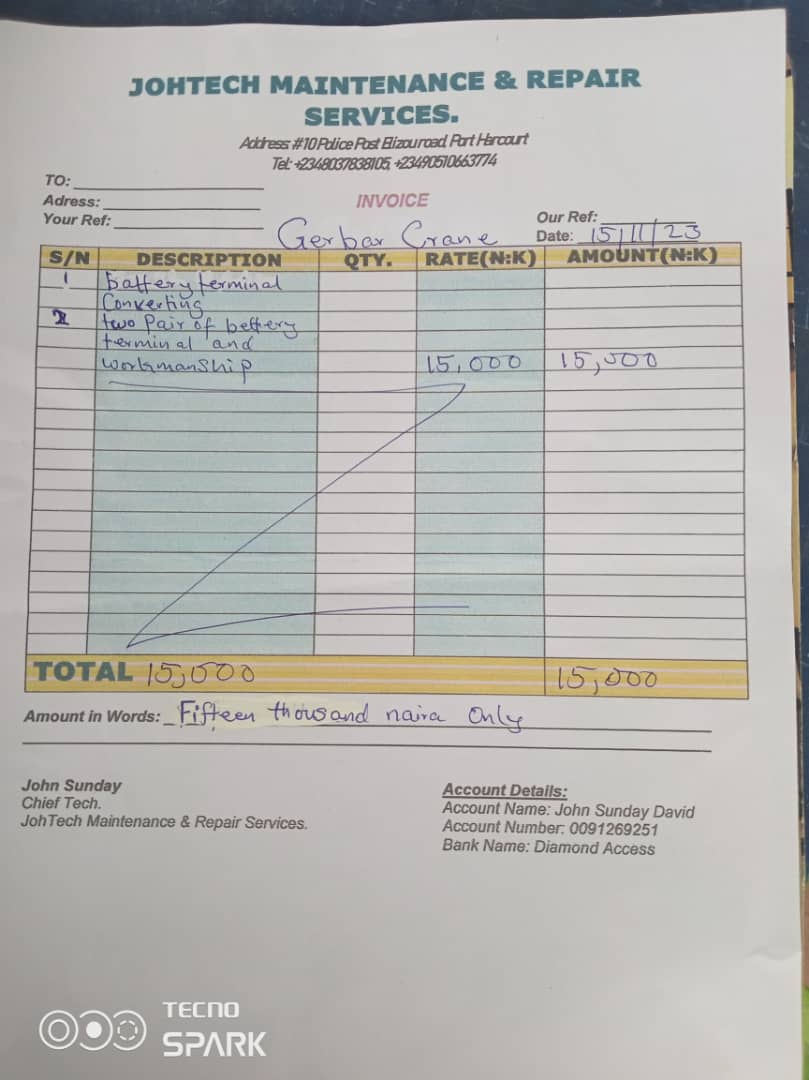 JOHTECH MAINTENANCE & REPAIR
SERVICES.
Address: #10 Police Post Elizou road, Port Harcourt
Tel: +2348037838105, +2349051066​3774
TO:
Adress:
INVOICE
Your Ref:
Our Ref:
Gerbar Crane
Date: 15/11/23
S/N DESCRIPTION QTY. RATE(N:K) AMOUNT(N:K)
1 battery terminal
Converting
2 two Pair of bettery
terminal and
workmanShip 15,000 15,000
TOTAL 15,000 15,000
Amount in Words: Fifteen thousand naira Only
John Sunday
Chief Tech.
JohTech Maintenance & Repair Services.
Account Details:
Account Name: John Sunday David
Account Number: 0091269251
Bank Name: Diamond Access
TECNO
SPARK